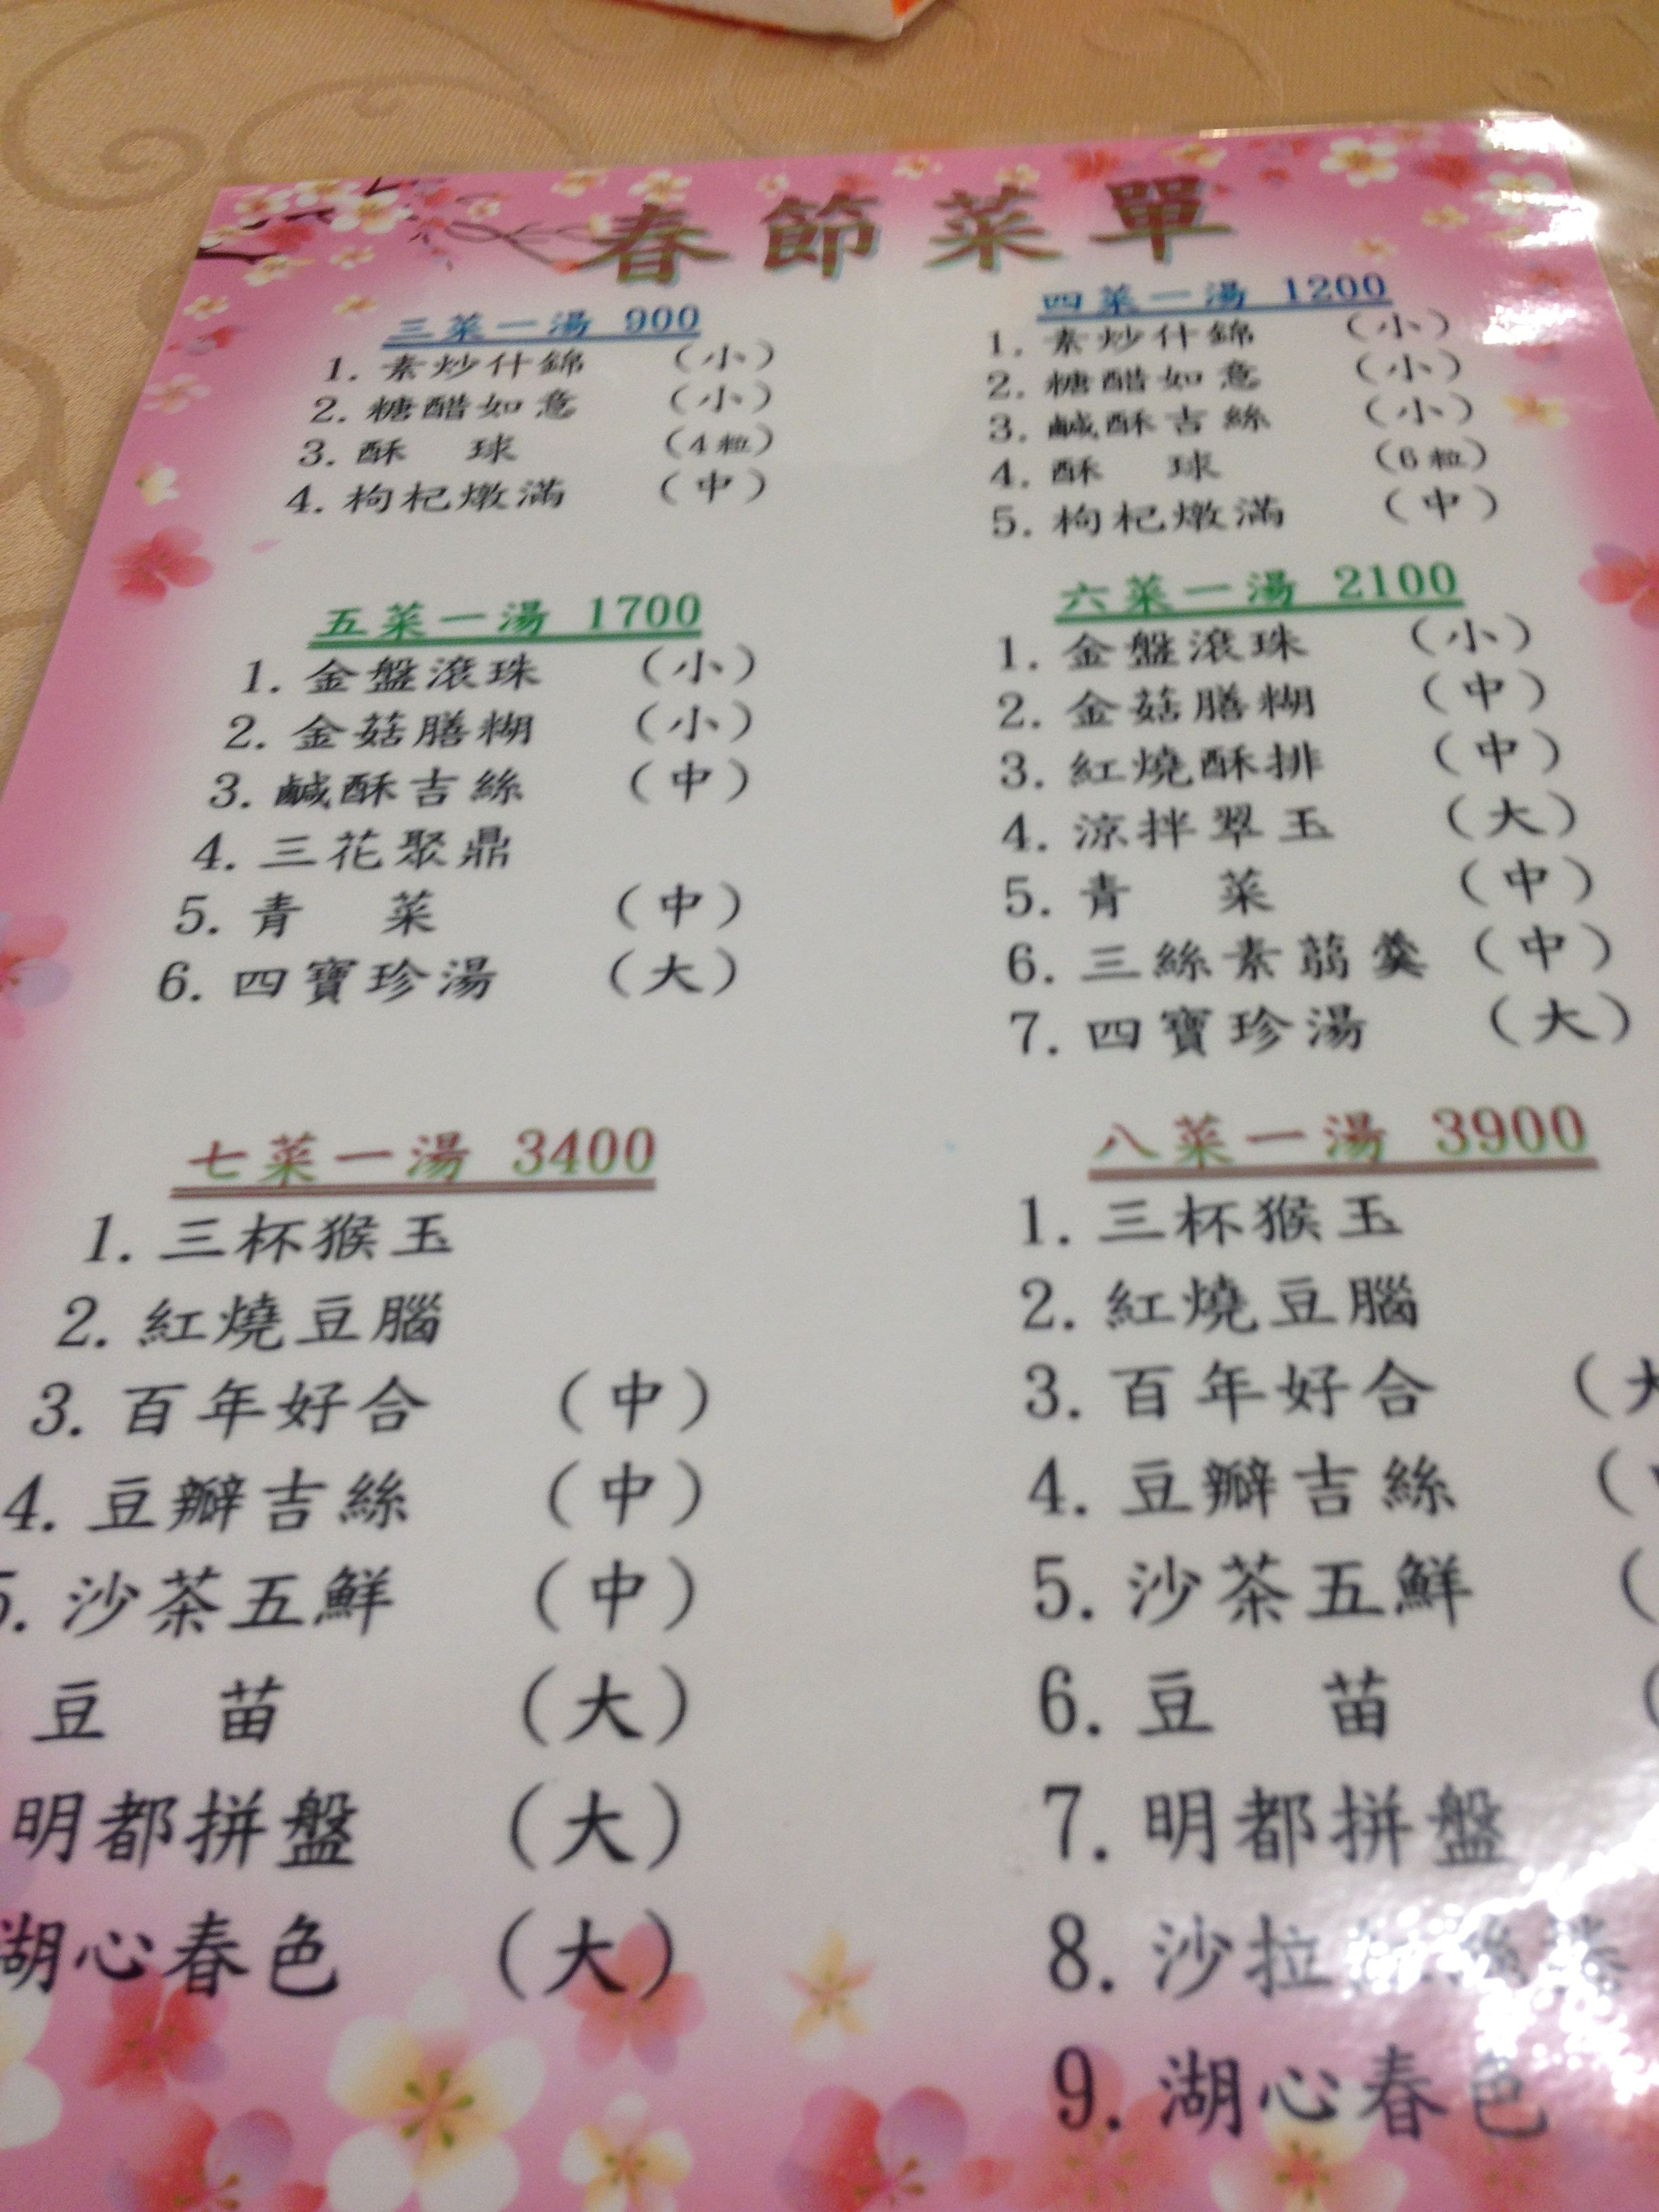 春節菜單
三菜一湯 900
1. 素炒什錦 (小)
2. 糖醋如意 (小)
3. 酥 球 (4粒)
4. 枸杞燉滿 (中)
四菜一湯 1200
1. 素炒什錦 (小)
2. 糖醋如意 (小)
3. 鹹酥吉絲 (小)
4. 酥 球 (6粒)
5. 枸杞燉滿 (中)
五菜一湯 1700
1. 金盤滾珠 (小)
2. 金菇膳糊 (小)
3. 鹹酥吉絲 (中)
4. 三花聚鼎
5. 青 菜 (中)
6. 四寶珍湯 (大)
六菜一湯 2100
1. 金盤滾珠 (小)
2. 金菇膳糊 (中)
3. 紅燒酥排 (中)
4. 涼拌翠玉 (大)
5. 青 菜 (中)
6. 三絲素羹 (中)
7. 四寶珍湯 (大)
七菜一湯 3400
1. 三杯猴玉
2. 紅燒豆腦
3. 百年好合 (中)
4. 豆瓣吉絲 (中)
5. 沙茶五鮮 (中)
豆 苗 (大)
明都拼盤 (大)
湖心春色 (大)
八菜一湯 3900
1. 三杯猴玉
2. 紅燒豆腦
3. 百年好合 (大
4. 豆瓣吉絲 (
5. 沙茶五鮮 (
6. 豆 苗 (
7. 明都拼盤
8. 沙拉
9. 湖心春色